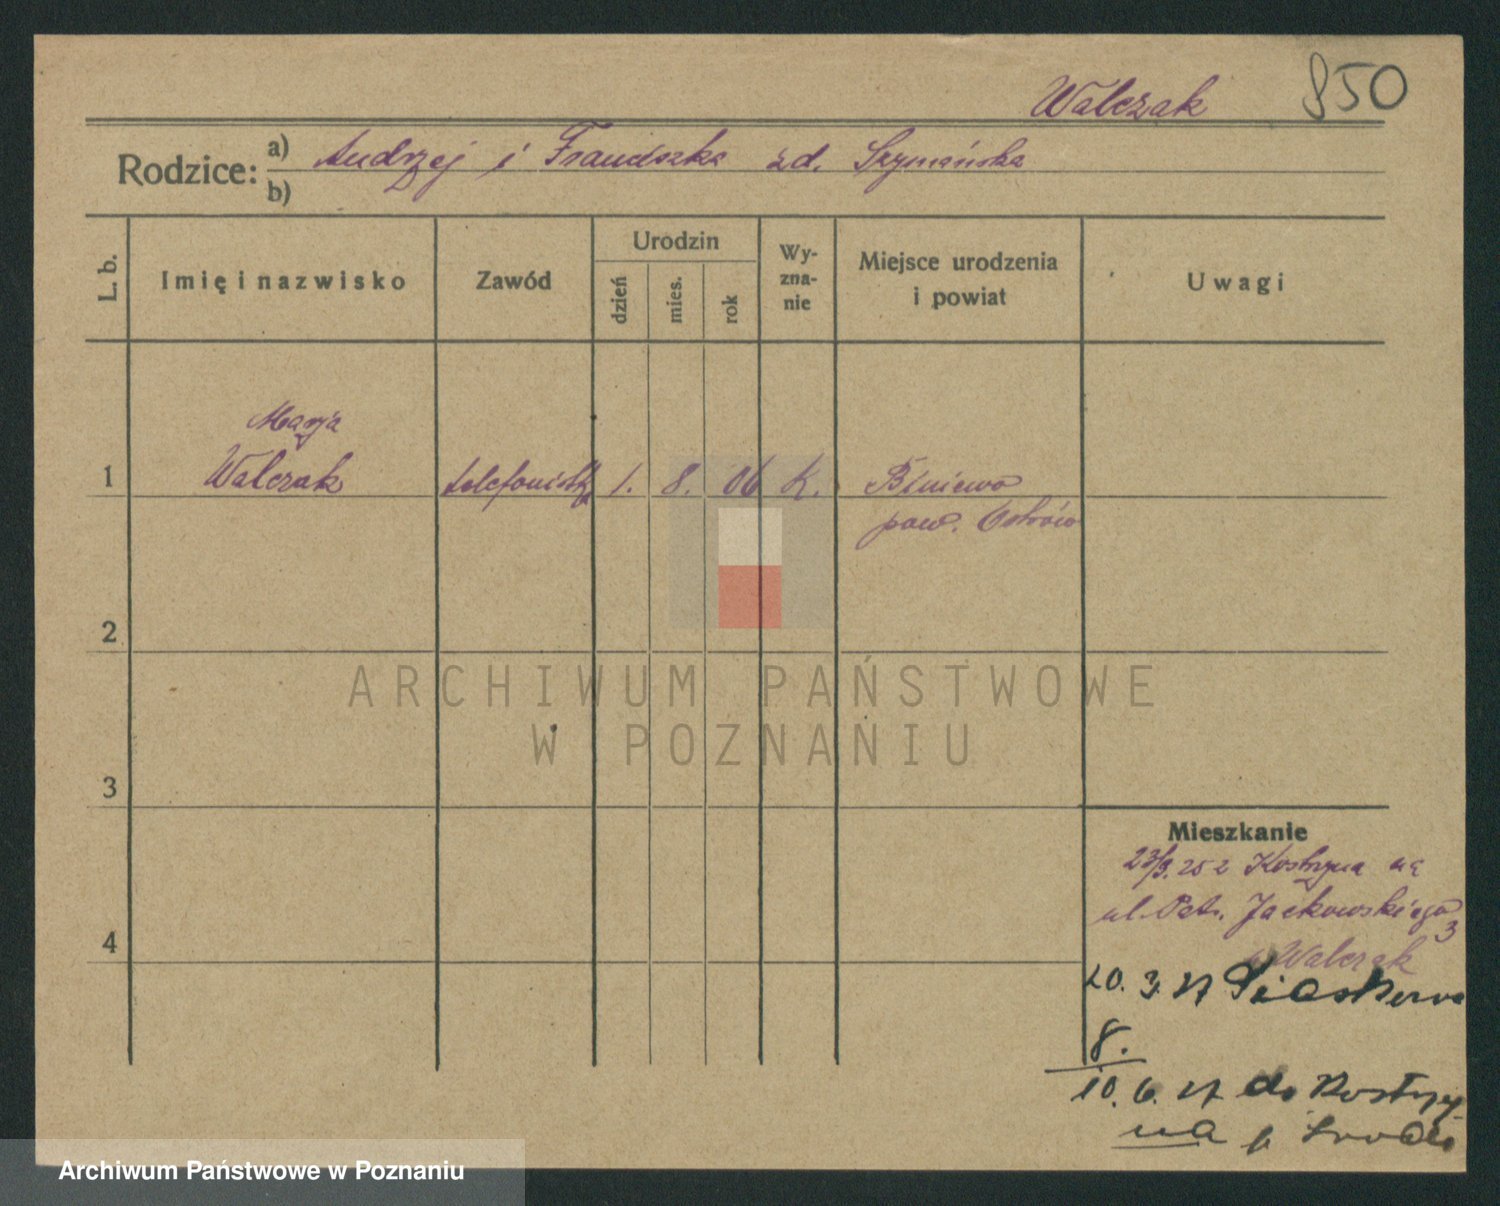 Walczak 850
Rodzice: a) Andrzej i Franciszka zd. Szymańska
b)
L. b. Imię i nazwisko Zawód Urodzin dzień mies. rok Wy-zna-nie Miejsce urodzenia i powiat Uwagi
Marja
1 Walczak telefonistka 1. 8. 06 K. Biniewo
pow. Ostrów
2
ARCHIWUM PAŃSTWOWE
W POZNANIU
3
Mieszkanie
23/9. 25 z Kostrzyna na
ul. Patr. Jackowskiego
3
4
Walczak
20. 3. 27 Piaskowa
8.
10. 6. 27 do Kostrzy
na p. Środa
Archiwum Państwowe w Poznaniu